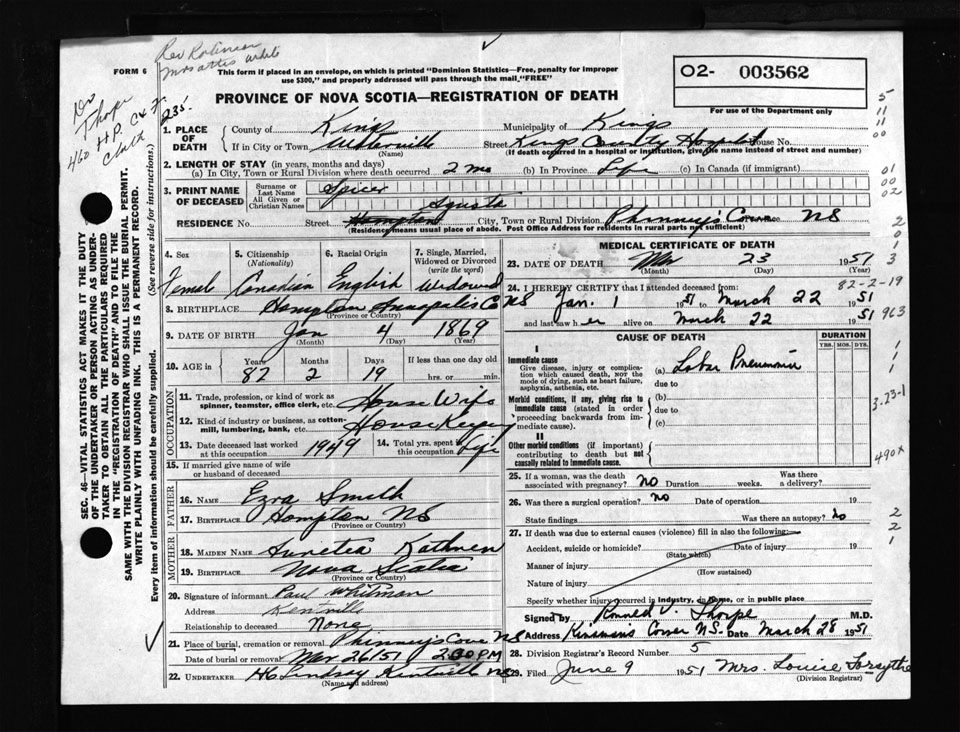 Rev Robinson
Mrs attis white
FORM 6
This form if placed in an envelope, on which is printed "Dominion Statistics—Free, penalty for improper
use $300," and properly addressed will pass through the mail "FREE"
02- 003562
For use of the Department only
PROVINCE OF NOVA SCOTIA—REGISTRATION OF DEATH
Dr
Thorpe
460 H.P. C & F
235.
SEC. 46—VITAL STATISTICS ACT MAKES IT THE DUTY
OF THE UNDERTAKER OR PERSON ACTING AS UNDER-
TAKER TO OBTAIN ALL THE PARTICULARS REQUIRED
IN THE "REGISTRATION OF DEATH" AND TO FILE THE
SAME WITH THE DIVISION REGISTRAR WHO SHALL ISSUE THE BURIAL PERMIT.
WRITE PLAINLY WITH UNFADING INK. THIS IS A PERMANENT RECORD.
Every item of information should be carefully supplied. (See reverse side for instructions.)
1. PLACE OF DEATH County of Kings Municipality of Kings
If in City or Town Waterville (Name) Street Kings County Hospital House No.
(If death occurred in a hospital or institution, give the name instead of street and number)
2. LENGTH OF STAY (in years, months and days)
(a) In City, Town or Rural Division where death occurred 2 mo (b) In Province Life (c) In Canada (if immigrant)
3. PRINT NAME OF DECEASED Surname or Last Name Spicer
All Given or Christian Names Agusta
RESIDENCE No. Street Hampton City, Town or Rural Division Phinney's Cove Province NS
(Residence means usual place of abode. Post Office Address for residents in rural parts not sufficient)
4. Sex 5. Citizenship (Nationality) 6. Racial Origin 7. Single, Married, Widowed or Divorced (write the word)
Female Canadian English Widowed
8. BIRTHPLACE Hampton Annapolis Co NS
(Province or Country)
9. DATE OF BIRTH Jan 4 1869
(Month) (Day) (Year)
10. AGE in Years Months Days If less than one day old
82 2 19 hrs. or min.
OCCUPATION
11. Trade, profession, or kind of work as spinner, teamster, office clerk, etc. House Wife
12. Kind of industry or business, as cotton-mill, lumbering, bank, etc. House Keeping
13. Date deceased last worked at this occupation 1949 14. Total yrs. spent at this occupation Life
15. If married give name of wife or husband of deceased
FATHER
16. NAME Ezra Smith
17. BIRTHPLACE Hampton NS
(Province or Country)
MOTHER
18. MAIDEN NAME
19. BIRTHPLACE Nova Scotia
(Province or Country)
20. Signature of informant Paul Whitman
Address Kentville
Relationship to deceased None
21. Place of burial, cremation or removal Phinney's Cove NS
Date of burial or removal Mar 26/51 2:30 PM
22. UNDERTAKER H C Lindsay Kentville NS
(Name and address)
MEDICAL CERTIFICATE OF DEATH
23. DATE OF DEATH Mar 23 1951
(Month) (Day) (Year)
82-2-19
24. I HEREBY CERTIFY that I attended deceased from:
Jan. 1 1951 to March 22 1951
and last saw her alive on March 22 1951
CAUSE OF DEATH DURATION
YRS. MOS. DYS.
I
Immediate cause
Give disease, injury or complication which caused death, NOT the mode of dying, such as heart failure, asphyxia, asthenia, etc.
(a) Lobar Pneumonia
due to
Morbid conditions, if any, giving rise to immediate cause (stated in order proceeding backwards from immediate cause).
(b)
due to
(c)
II
Other morbid conditions (if important) contributing to death but not causally related to immediate cause.
25. If a woman, was the death associated with pregnancy? no Duration weeks. Was there a delivery?
26. Was there a surgical operation? no Date of operation 19
State findings Was there an autopsy? no
27. If death was due to external causes (violence) fill in also the following:
Accident, suicide or homicide? Date of injury 19
(State which)
Manner of injury
(How sustained)
Nature of injury
Specify whether injury occurred in industry, in home, or in public place
Signed by Ronald V. Thorpe M.D.
Address Kinsmans Corner N.S. Date March 28 1951
28. Division Registrar's Record Number 5
29. Filed June 9 1951 Mrs. Louise Forsythe
(Division Registrar)
5
11
11
00
01
00
02
2
0
1
3
963
1
1
1
3-23-1
490x
2
2
1